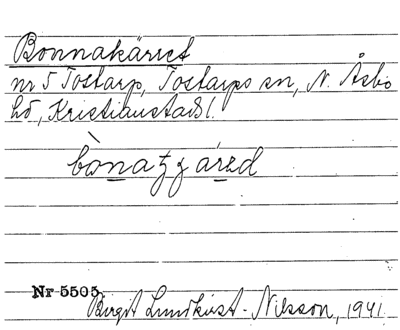 Bonnakärret
nr 5 Tostarp, Tostarps sn, N. Åsbo
hd, Kristianstads l.
Nr 5505
Birgit Lundkvist-Nilsson, 1941.